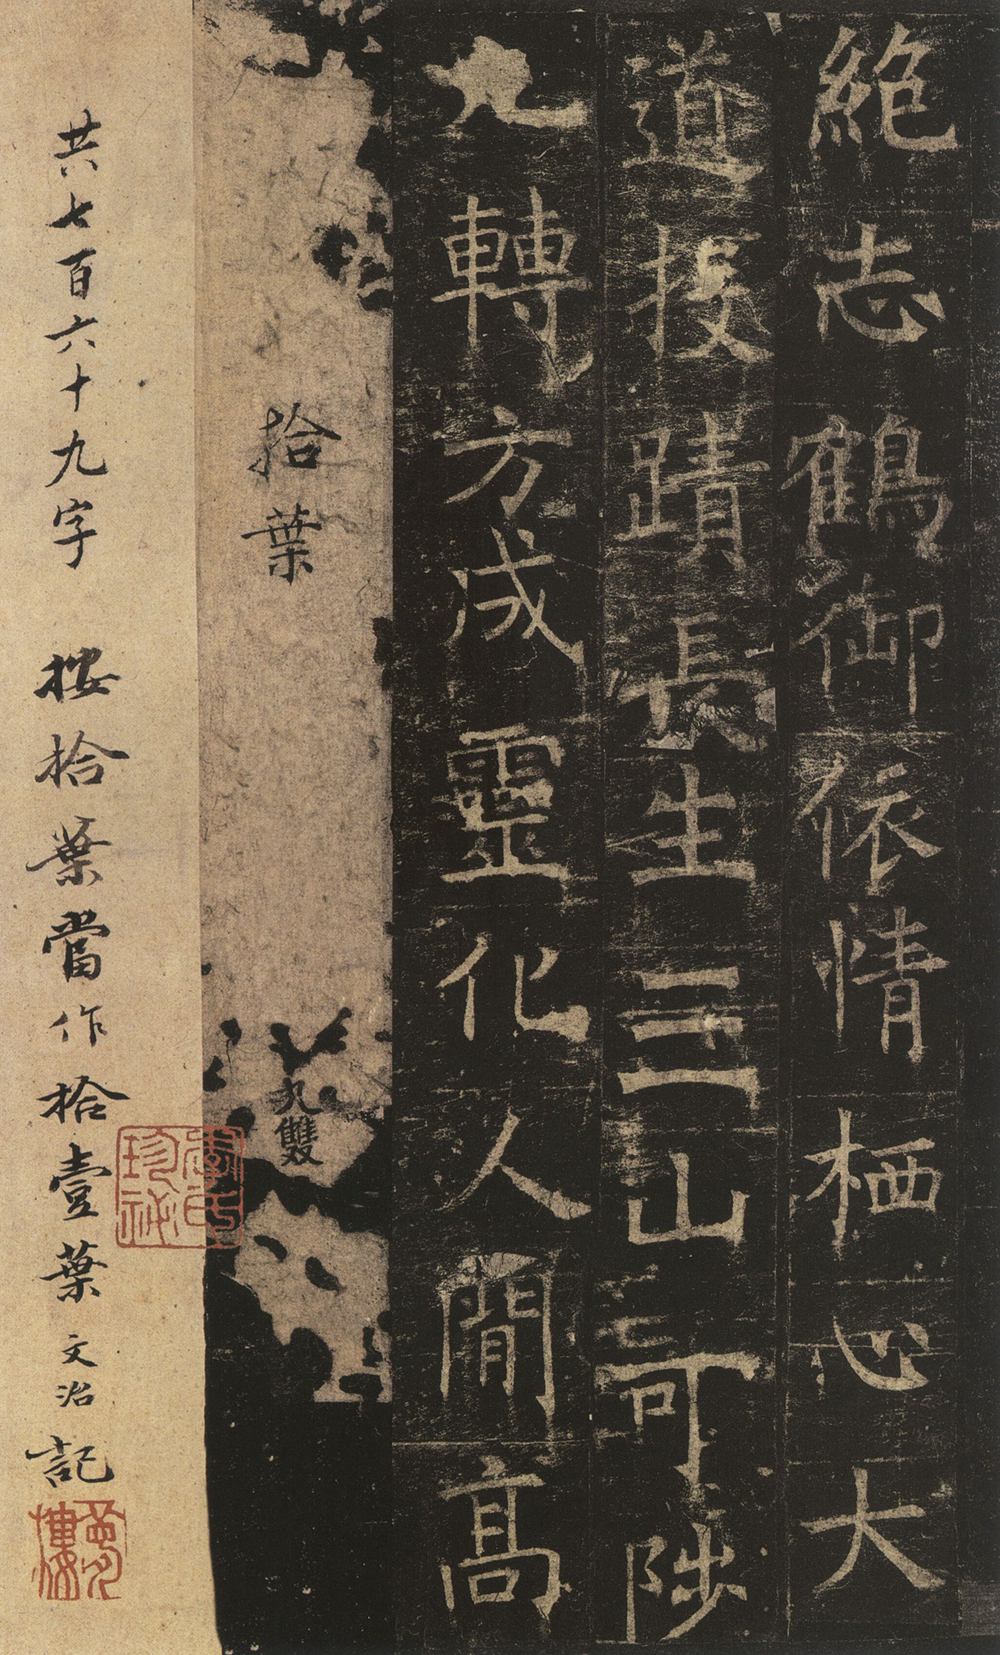 絶志鶴御依情栖心大
道投蹟長生三山可陟
九轉方成靈化人間高
拾葉
九雙
共七百六十九字 按拾葉當作拾壹葉文治記
李氏珍祕
夢樓